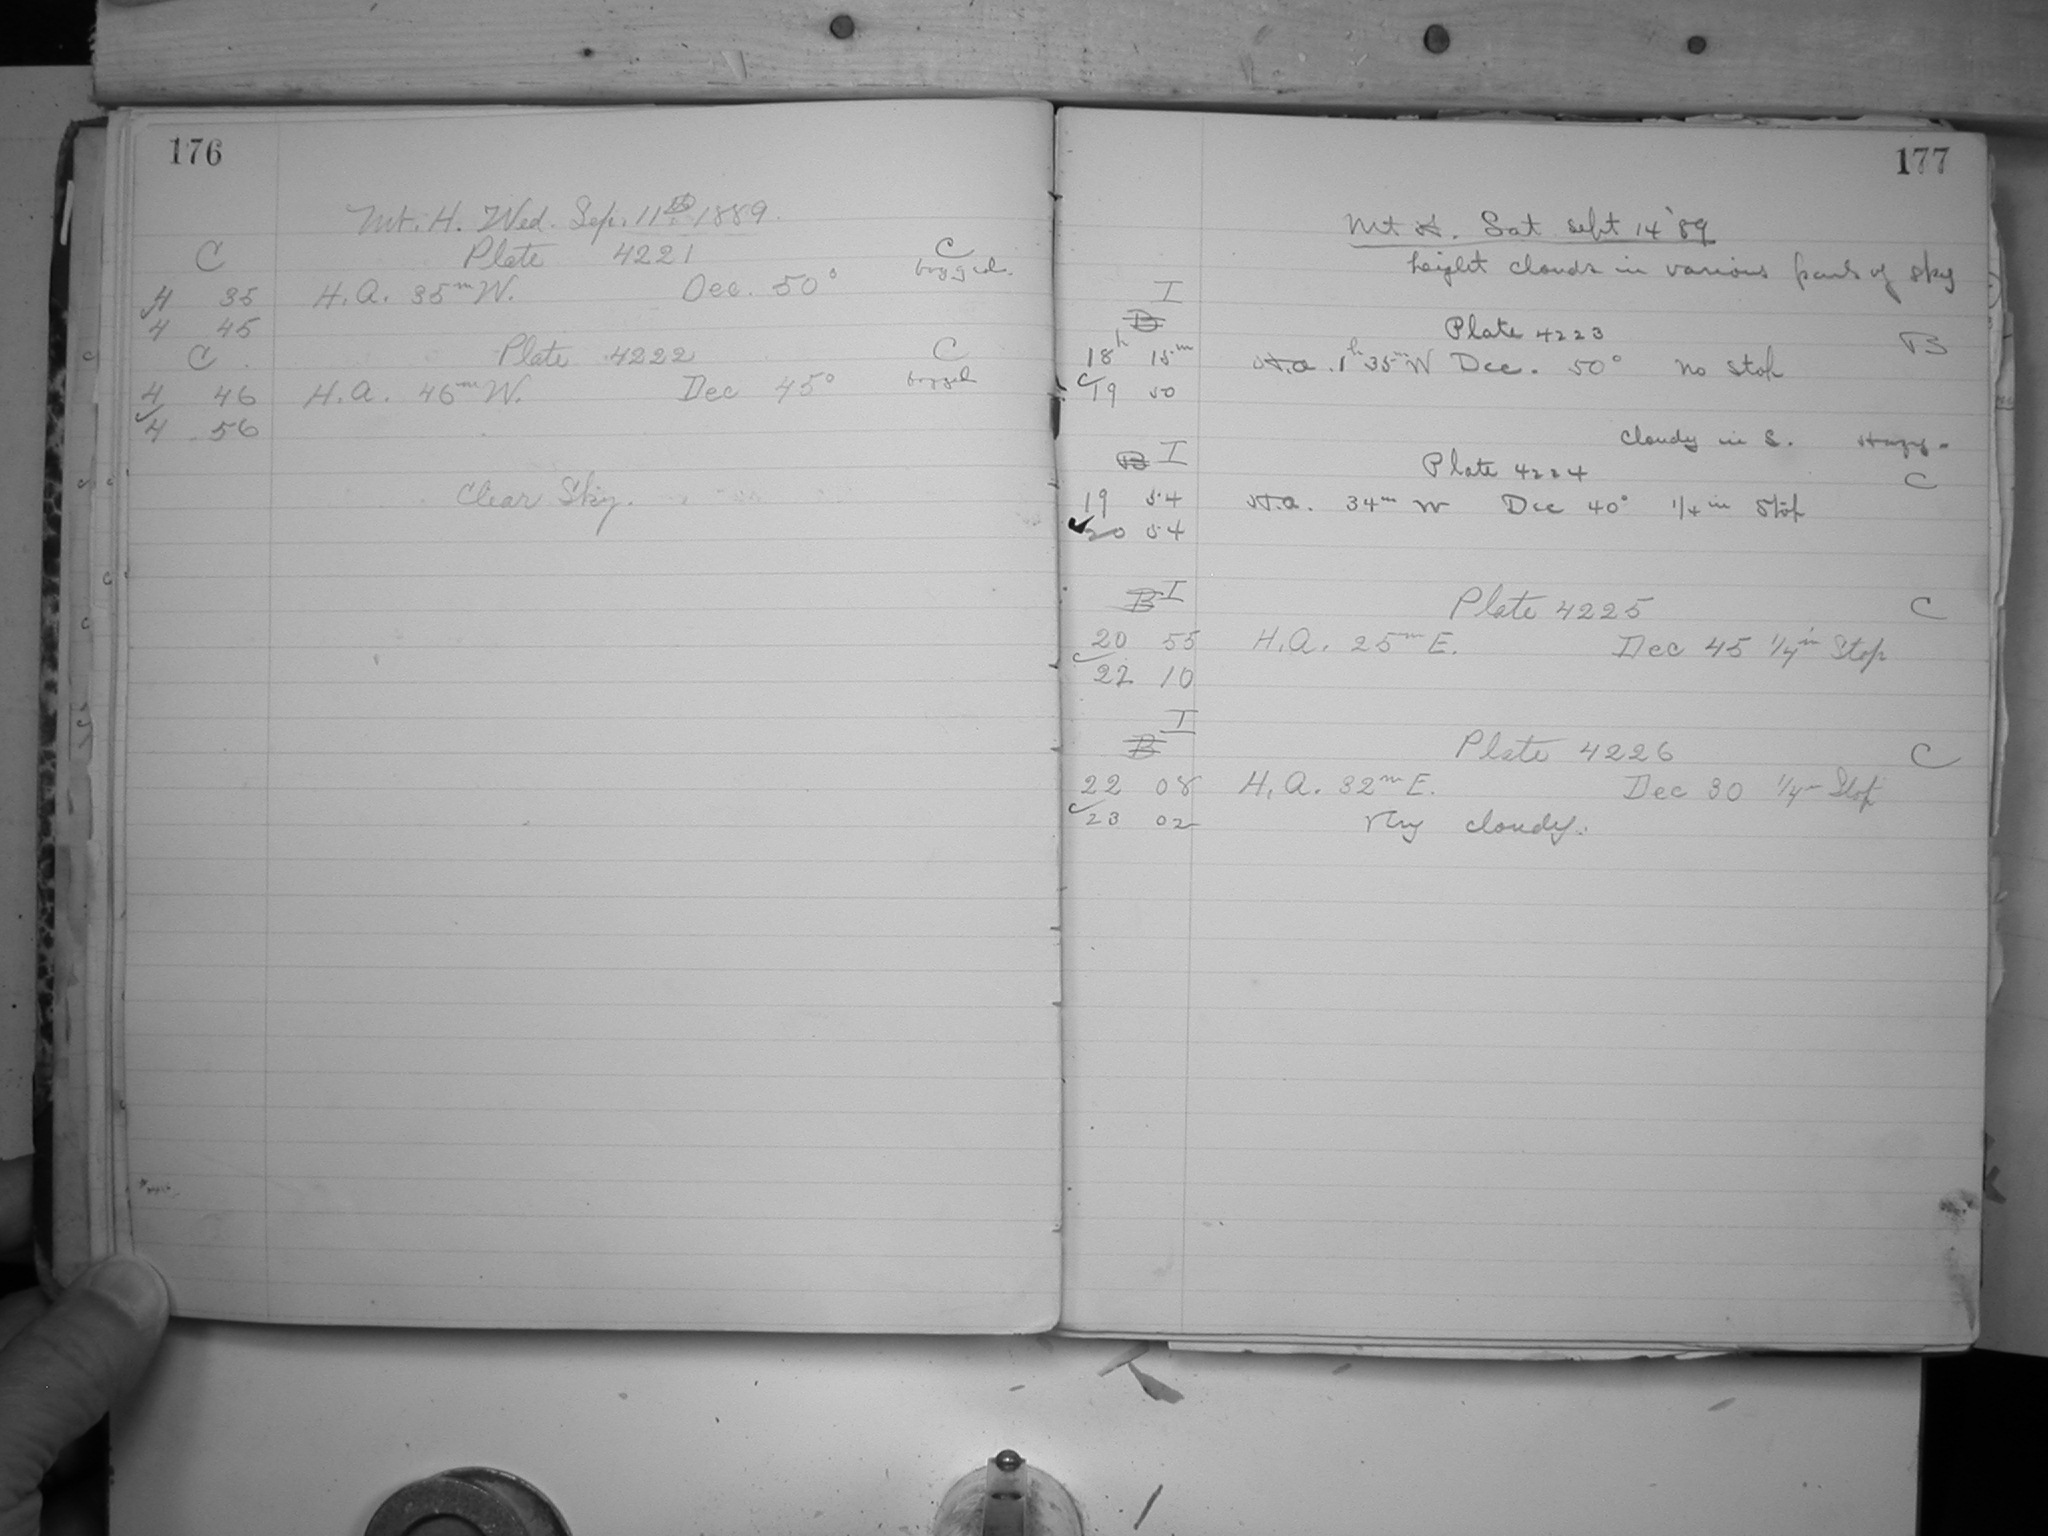 176
Mt. H. Wed. Sep. 11th 1889.
C Plate 4221 C
fogged.
4 35 H.A. 35m W. Dec. 50°
4 45
C Plate 4222 C
4 46 H.A. 46m W. Dec 45° fogged
4 56
Clear Sky.
177
Mt H. Sat Sept 14 '89
height clouds in various parts of sky
I
B Plate 4223 B
18h 15m H.a. 1h 35m W Dec. 50° no stop
19 50
Cloudy in S. Hazy.
B I Plate 4224 C
19 54 H.a. 34m W Dec 40° 1/4 in Stop
20 54
B I Plate 4225 C
20 55 H.A. 25m E. Dec 45 1/4 in Stop
22 10
I
B Plate 4226 C
22 08 H.A. 32m E. Dec 30 1/4 Stop
23 02 Very cloudy.